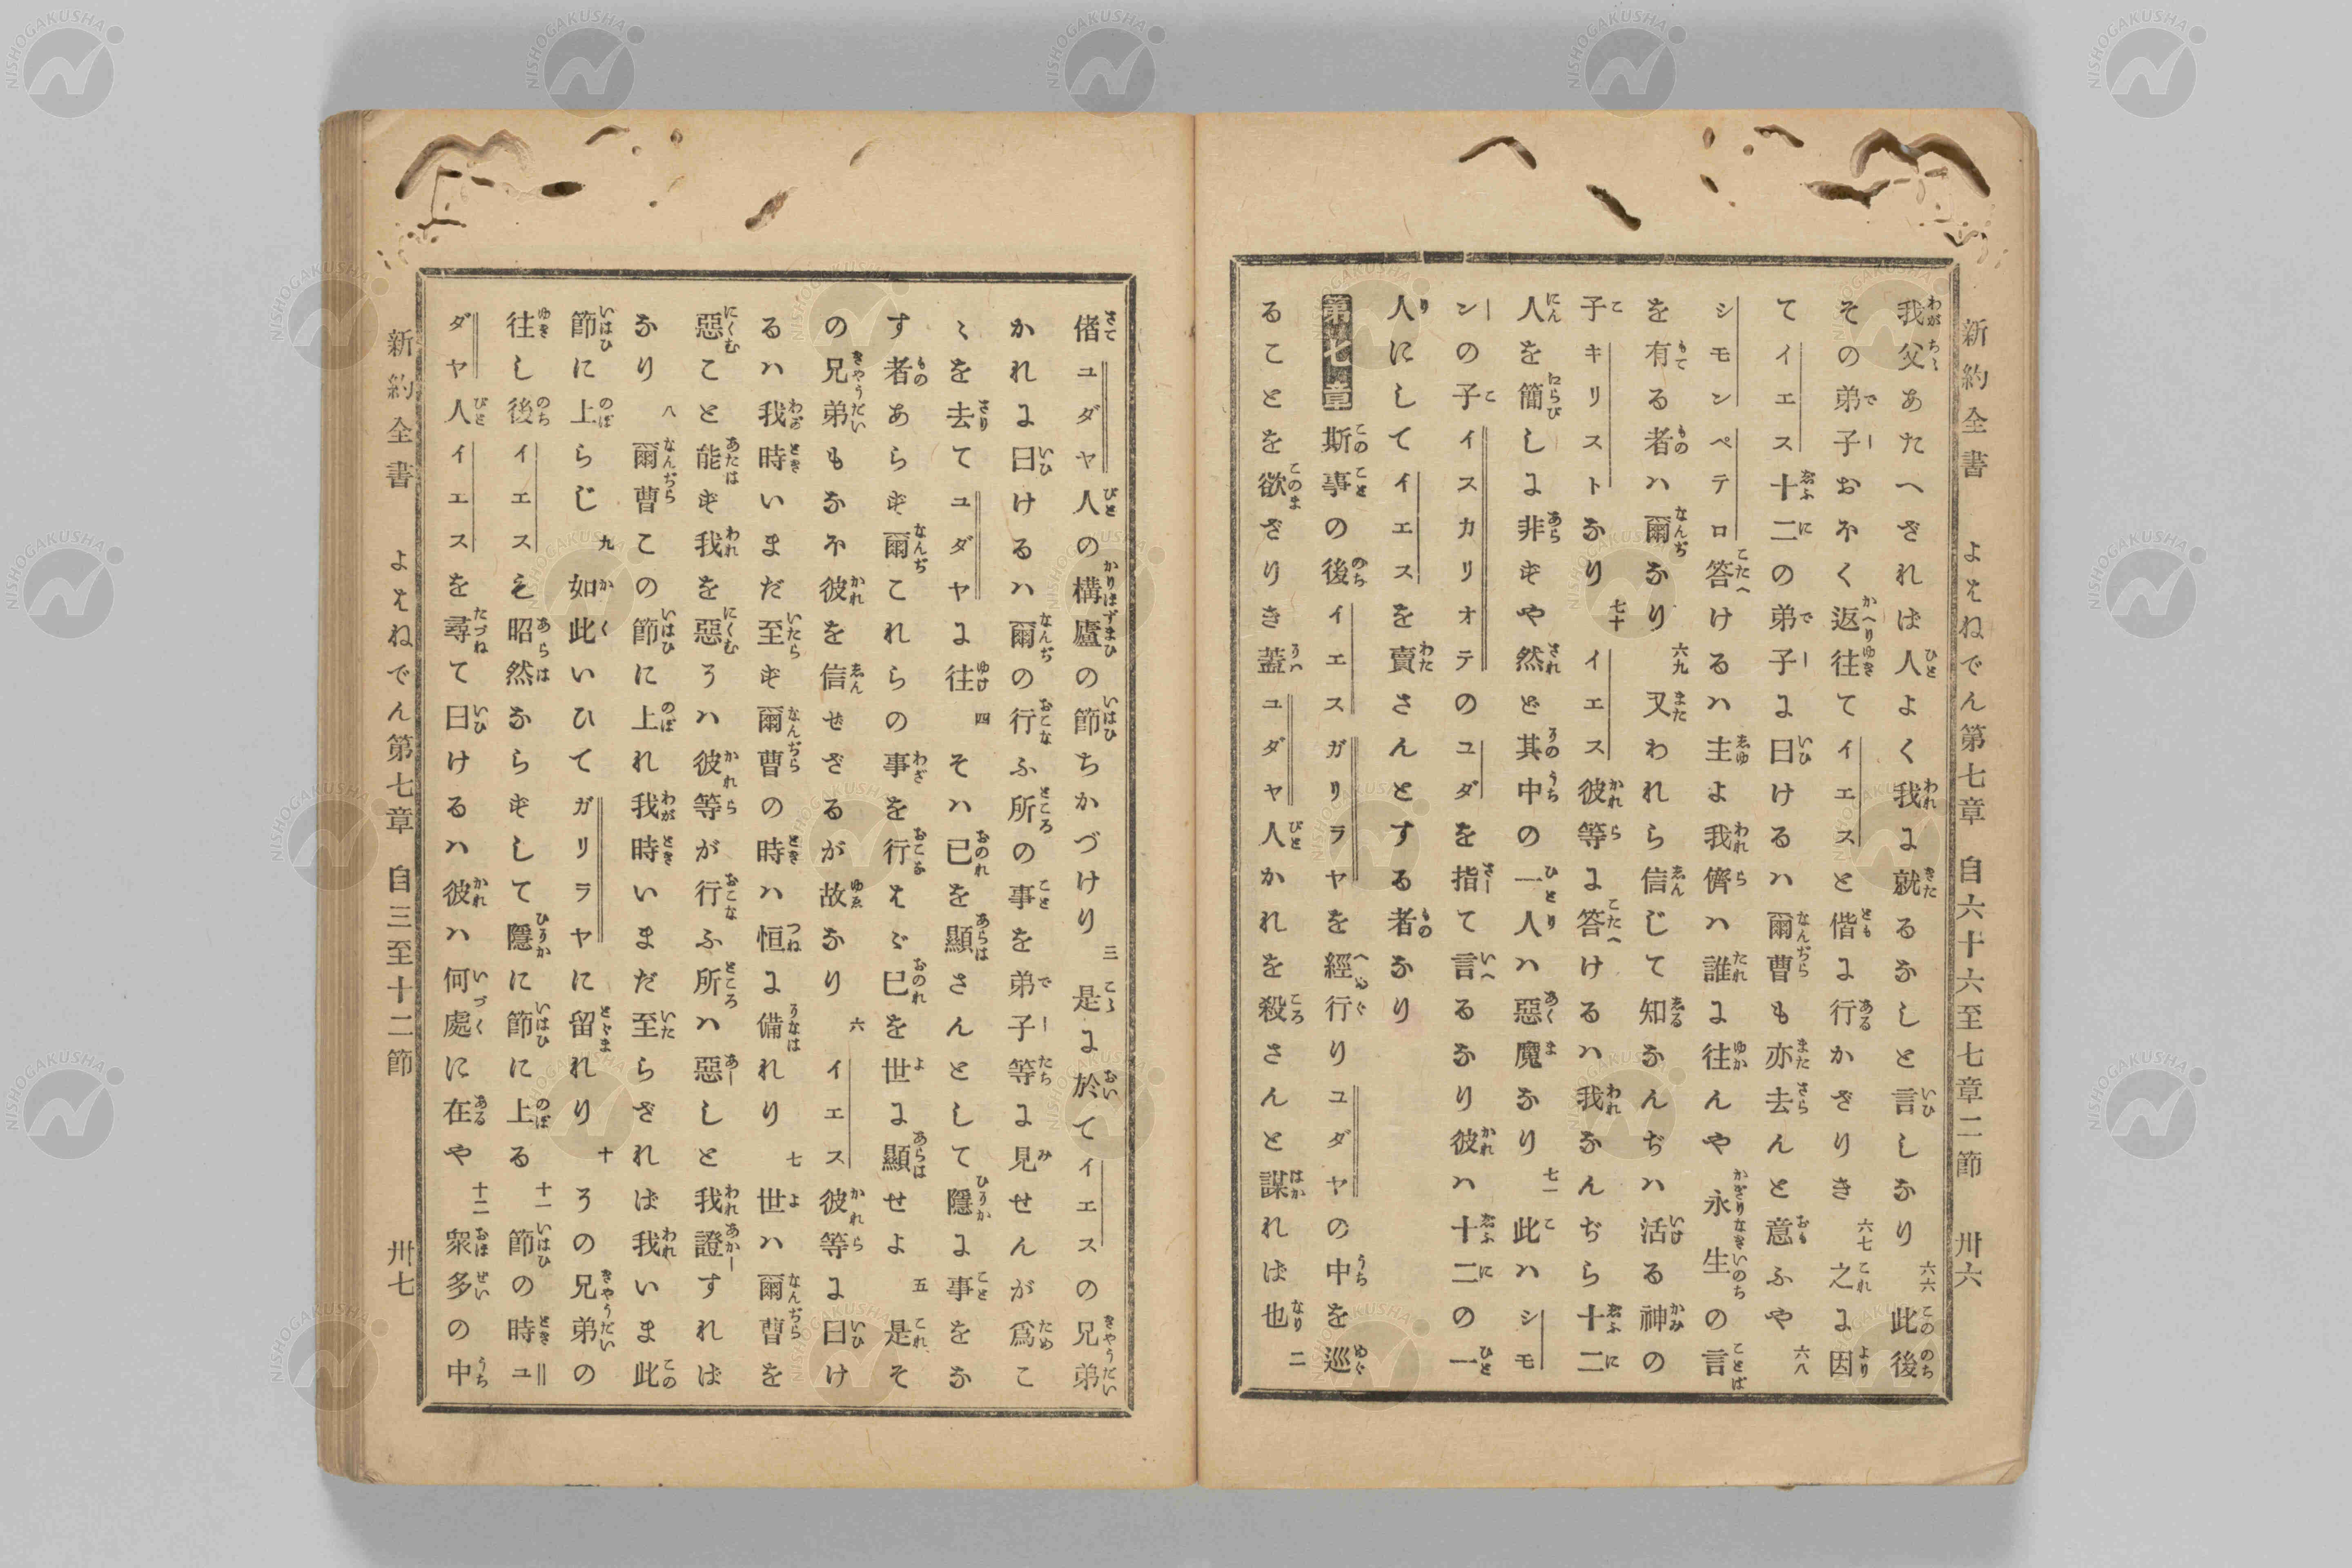 新約全書 よはねでん第七章 自六十六至七章二節 卅六
我父あたへざれば人よく我に就るなしと言しなり 六六 此後
その弟子おほく返往てイエスと偕に行かざりき 六七 之に因
てイエス十二の弟子に曰けるハ爾曹も亦去んと意ふや 六八
シモンペテロ答けるハ主よ我儕ハ誰に往んや永生の言
を有る者ハ爾なり 六九 又われら信じて知なんぢハ活る神の
子キリストなり 七十 イエス彼等に答けるハ我なんぢら十二
人を簡しに非ずや然ど其中の一人ハ惡魔なり 七一 此ハシモ
ンの子イスカリオテのユダを指て言るなり彼ハ十二の一
人にしてイエスを賣さんとする者なり
第七章 斯事の後イエスガリラヤを經行りユダヤの中を巡
ることを欲ざりき蓋ユダヤ人かれを殺さんと謀れば也 二
偖ユダヤ人の構廬の節ちかづけり 三 是に於てイエスの兄弟
かれに曰けるハ爾の行ふ所の事を弟子等に見せんが爲こ
ゝを去てユダヤに往 四 そハ已を顯さんとして隱に事をな
す者あらず爾これらの事を行はゞ已を世に顯せよ 五 是そ
の兄弟もなほ彼を信せざるが故なり 六 イエス彼等に曰け
るハ我時いまだ至ず爾曹の時ハ恒に備れり 七 世ハ爾曹を
惡こと能ず我を惡そハ彼等が行ふ所ハ惡しと我證すれば
なり 八 爾曹この節に上れ我時いまだ至らざれば我いま此
節に上らじ 九 如此いひてガリラヤに留れり 十 その兄弟の
往し後イエスも昭然ならずして隱に節に上る 十一 節の時ユ
ダヤ人イエスを尋て曰けるハ彼ハ何處に在や 十二 衆多の中
新約全書 よはねでん第七章 自三至十二節 卅七